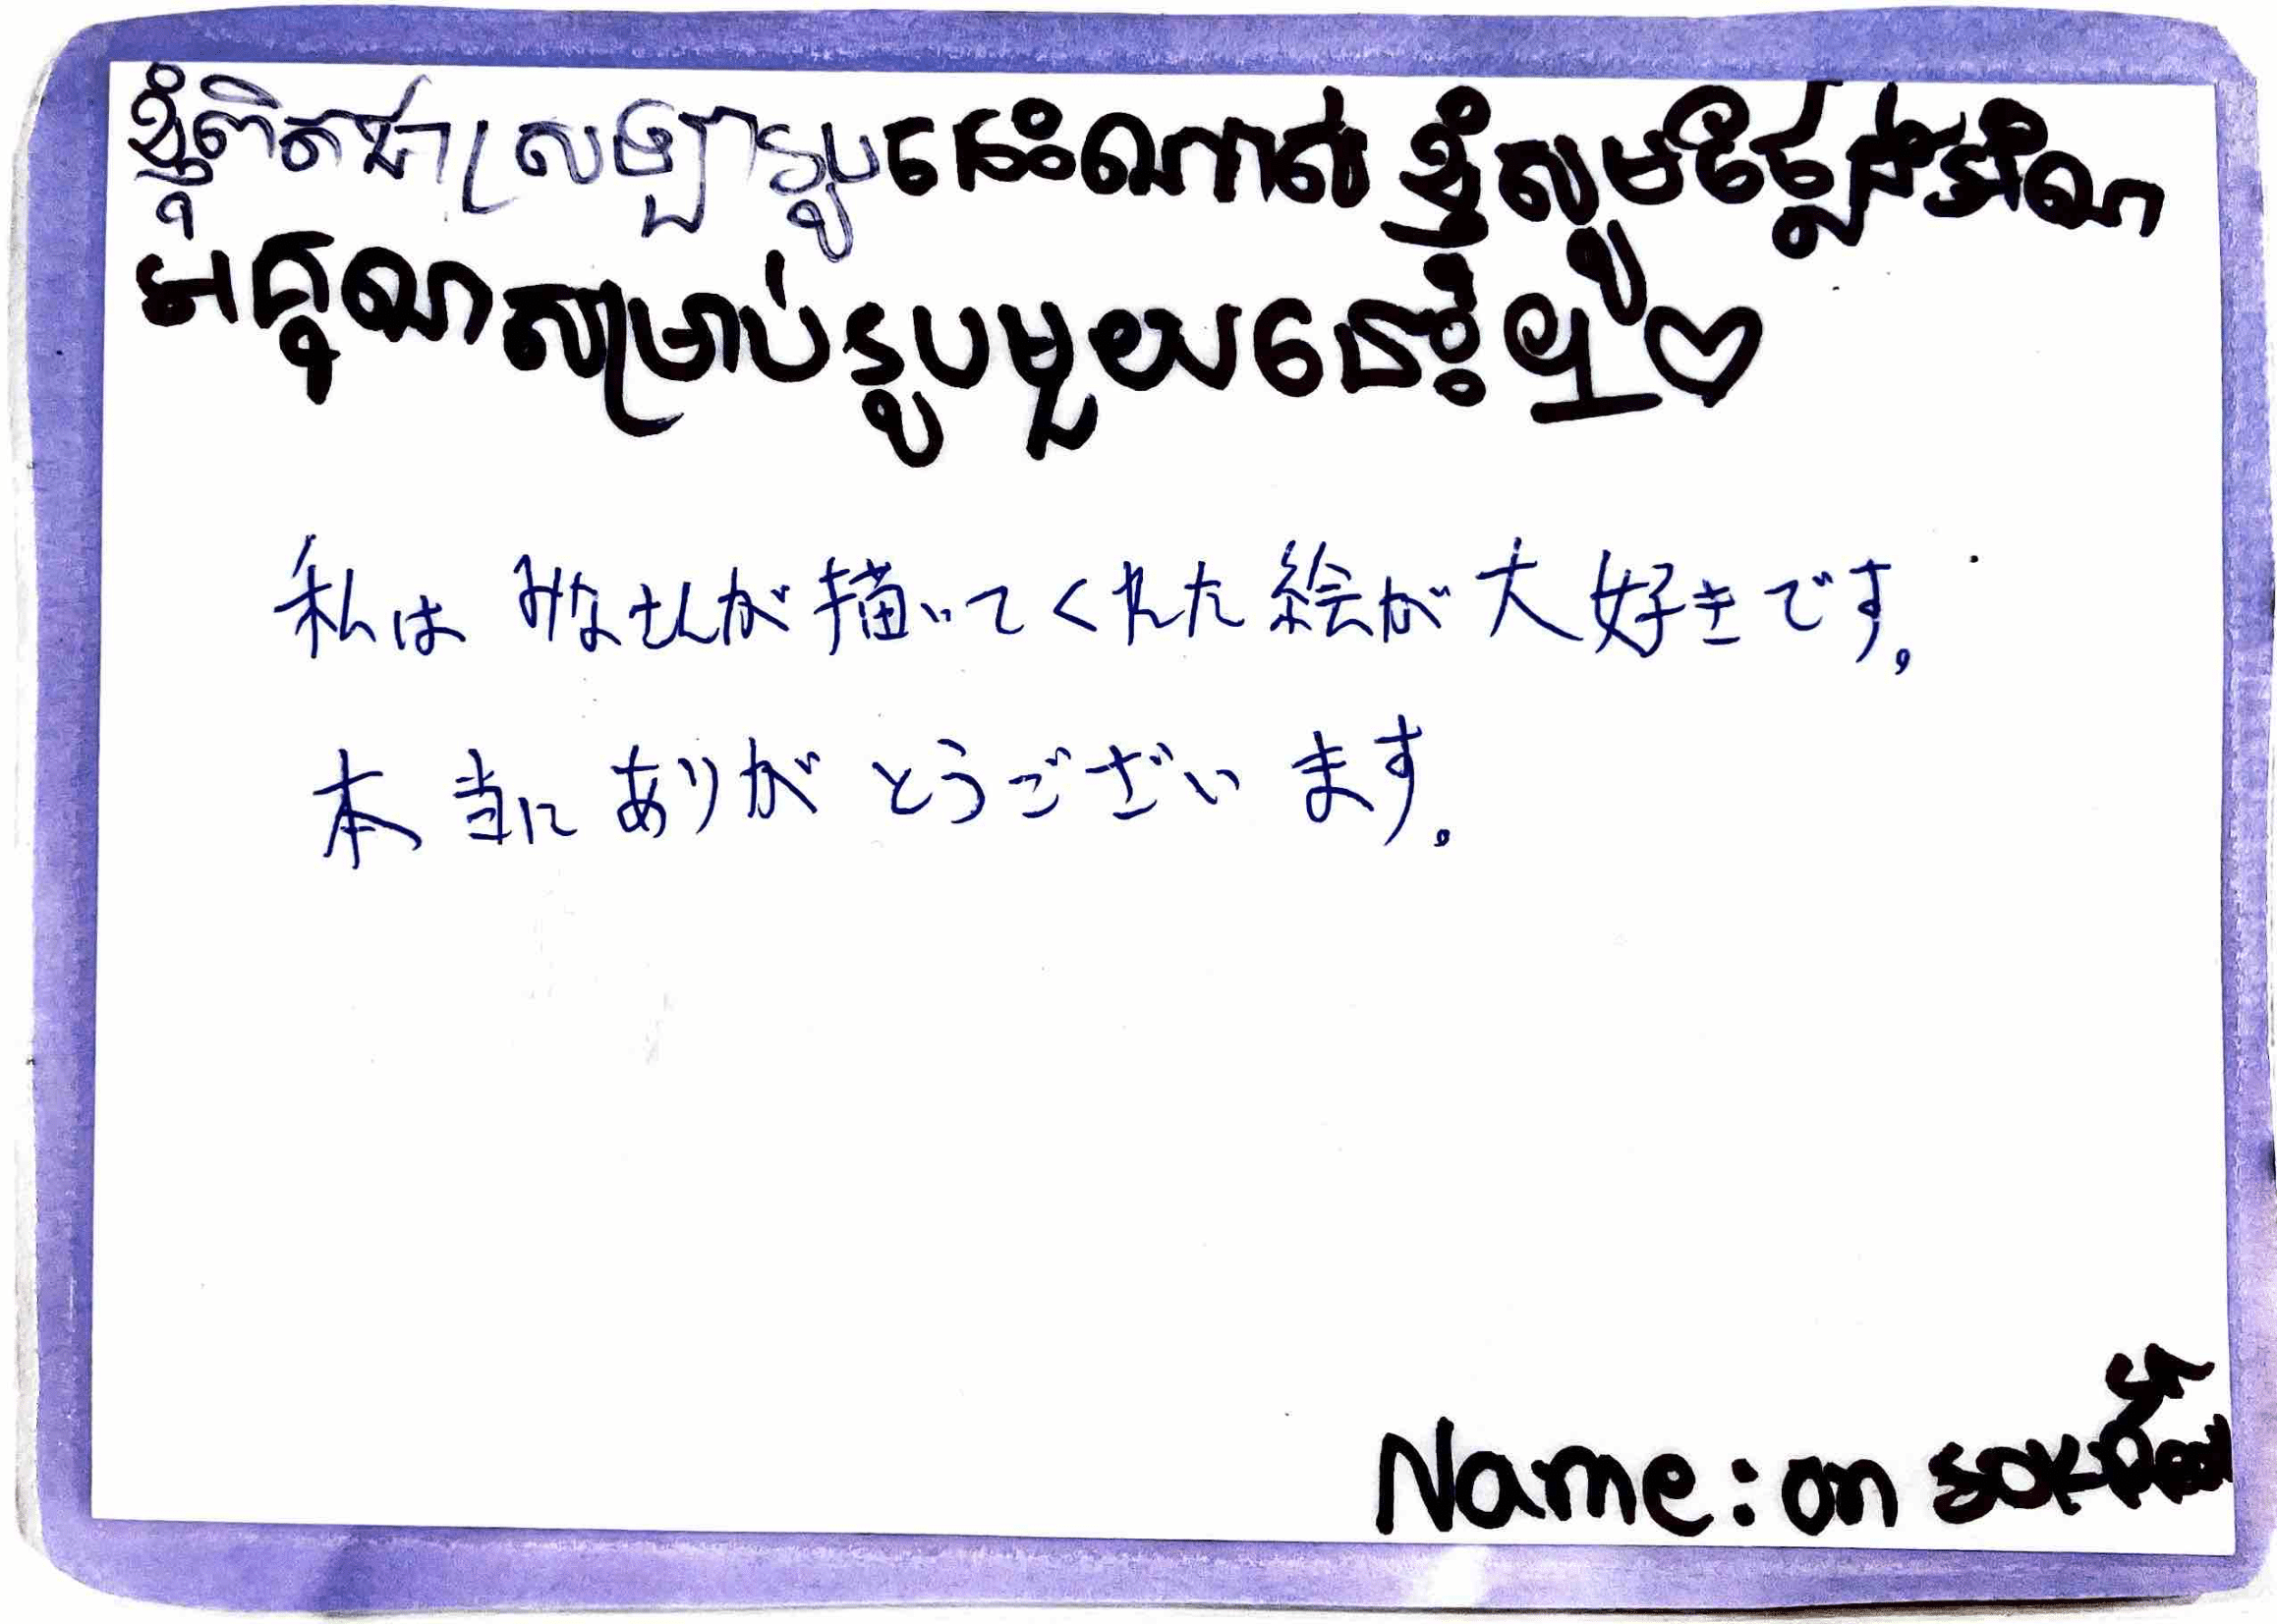 ខ្ញុំពិតជាស្រឡាញ់រូបនេះណាស់ ខ្ញុំសូមថ្លែងអំណ
អគុណសម្រាប់រូបមួយនេះ
私は みなさんが 描いてくれた 絵が 大好きです。
本当に ありがとうございます。
Name: on